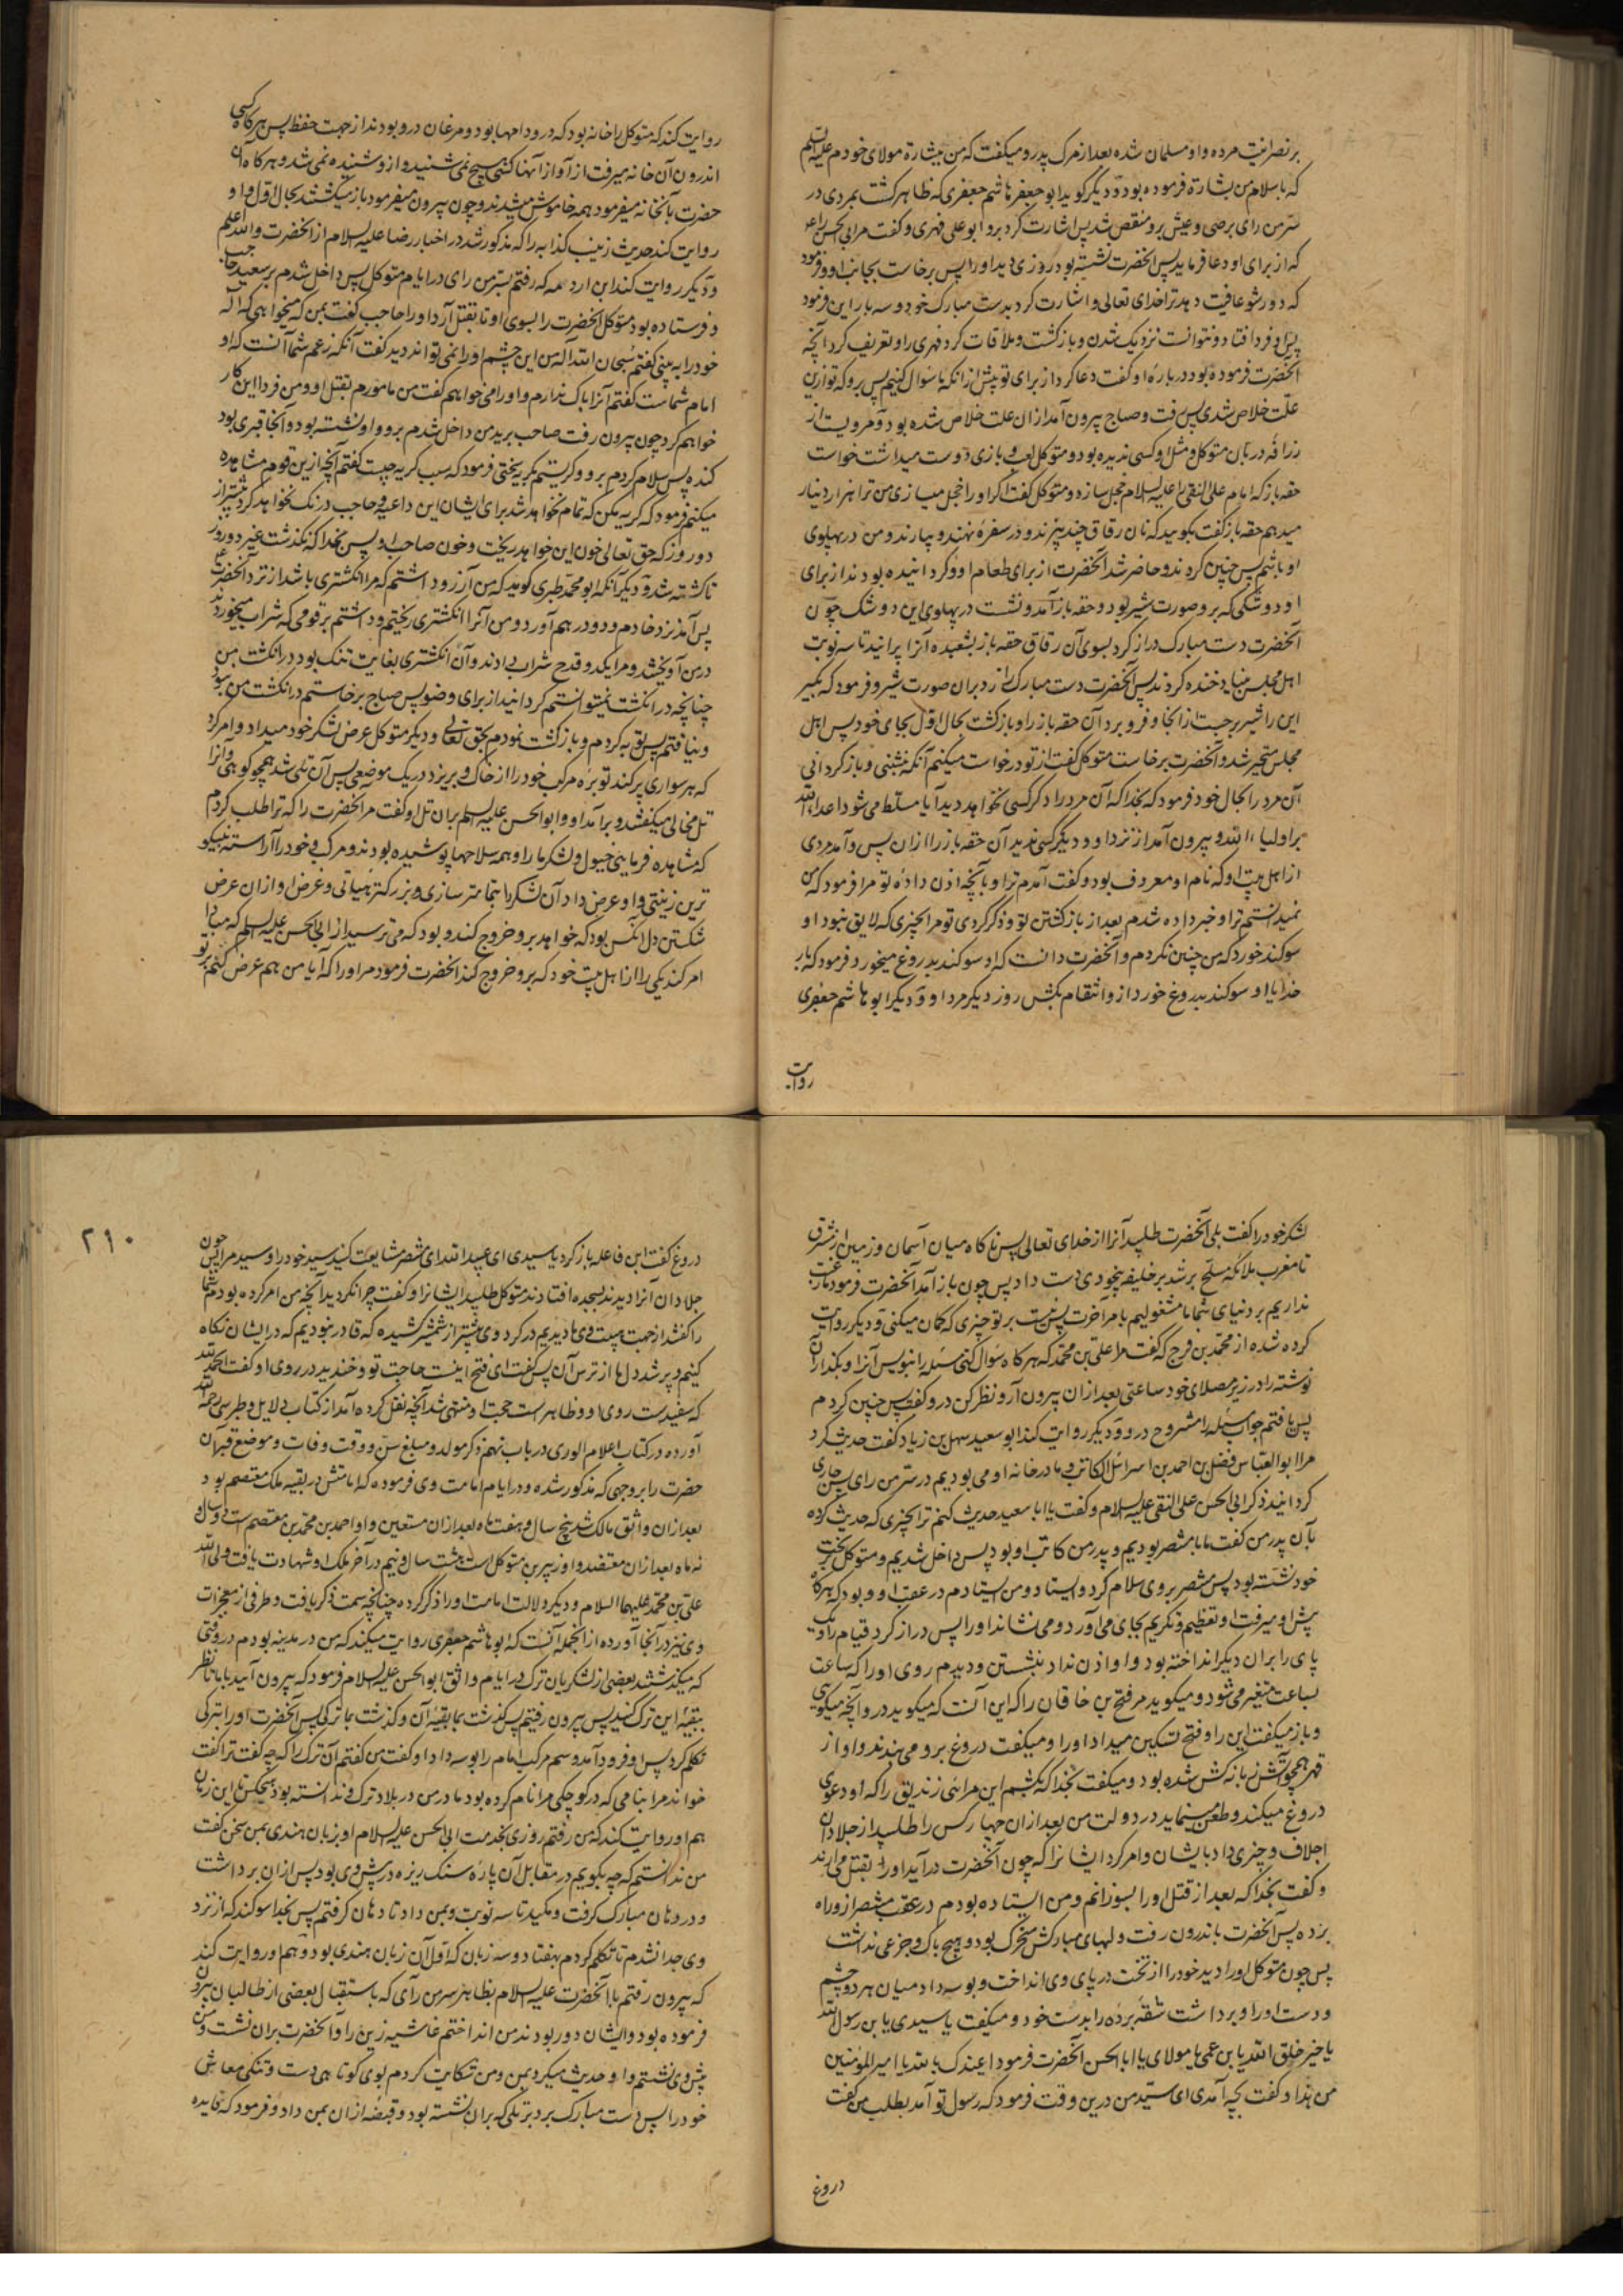 بر نصرانیت مرده و او مسلمان شده بعد از مرک پدر و میکفت که من بشارة مولای خودم علیه السلم
که باسلام من بشارة فرموده بود و دیگر کوید ابو جعفر هاشم جعفری که ظاهر کشت بمردی در
سرّ من رای برصی و عیش برو منقص شد پس اشارت کرد برو ابو علی فهری و کفت مر ابی الحسن را
که از برای او دعا فرماید پس آنحضرت نشسته بود روزی دید او را پس برخاست بجانب او و فرمود
که دور شو عافیت دهد ترا خدای تعالی و اشارت کرد بدست مبارک خود و سه بار این فرمود
پس او فرد افتاد و نتوانست نزدیک شدن و باز کشت و ملاقات کرد فهری را و تعریف کرد آنچه
آنحضرت فرموده بود درباره او کفت دعا کرد از برای تو پیش از آنکه ما سوال کنیم پس برو که تو ازین
علّت خلاص شدی پس رفت و صباح بیرون آمد از ان علت خلاص شده بود و مرویست از
زرافه دربان متوکل و مثل او کسی ندیده بود و متوکل لعب و بازی دوست میداشت خواست
حقه باز که امام علی النقی را علیه السلام خجل سازد و متوکل کفت اکر او را خجل میسازی من ترا هزار دینار
میدهم حقه باز کفت بکویید که نان رقاق چند پزند و در سفره نهند و بیارند و من در پهلوی
او باشم پس چنین کردند و حاضر شد آنحضرت از برای طعام او و کردانیده بودند از برای
او دوشکی که برو صورت شیر بود و حقه باز آمد و نشست در پهلوی این دوشک چون
آنحضرت دست مبارک دراز کرد بسوی آن رقاق حقه باز بشعبده آنرا پرانید تا سه نوبت
اهل مجلس بنیاد خنده کردند پس آنحضرت دست مبارک زد بران صورت شیر و فرمود که بکیر
این را شیر برجست از انجا و فرو برد آن حقه باز را و باز کشت بحال اول بجای خود پس اهل
مجلس متحیر شد و آنحضرت برخاست متوکل کفت از تو درخواست میکنم آنکه بنشینی و باز کردانی
آن مرد را بحال خود فرمود که بخدا که آن مرد را دکر کسی نخواهد دید آیا مسلط می شود اعداء الله
بر اولیاء الله و بیرون آمد از نزد او و دیکر کسی ندید آن حقه باز را ازان پس و آمد مردی
از اهل بیت او که نام او معروف بود و کفت آمدم ترا و بآنچه اذن داده تو مرا فرمود که من
نمیدانستم ترا و خبر داده شدم بعد از باز کشتن تو و ذکر کردی تو مرا بچیزی که لایق نبود او
سوکند خورد که من چنین نکردم و آنحضرت دانست که او سوکند بدروغ میخورد فرمود که بار
خدایا او سوکند بدروغ خورد ازو انتقام بکش روز دیکر مرد او و دیکر ابو هاشم جعفری
روایت
روایت کند که متوکل را خانه بود که درو دامها بود و مرغان درو بودند از جهت حفظ پس هرکاه کسی
اندرون آن خانه میرفت از آواز آنها کسی هیچ نمی شنید و ازو شنیده نمی شد و هرکاه آن
حضرت بآنخانه میفرمود همه خاموش میشدند و چون بیرون میفرمود باز میکشتند بحال اول و او
روایت کند حدیث زینب کذابه را که مذکور شد در اخبار رضا علیه السلام از آنحضرت والله اعلم
و دیکر روایت کند ابن اورمه که رفتم بسرّ من رای در ایام متوکل پس داخل شدم بر سعید حاجب
و فرستاده بود متوکل آنحضرت را بسوی او تا بقتل آرد او را حاجب کفت بمن که میخواهی که اله
خود را به بینی کفتم سُبحان الله اله من این چشم او را نمی تواند دید کفت آنکه زعم شما آنست که او
امام شماست کفتم آنرا باک ندارم و او را می خواهم کفت من مامورم بقتل او و من فردا این کار
خواهم کرد چون بیرون رفت صاحب برید من داخل شدم برو و او نشسته بود و آنجا قبری بود
کنده پس سلام کردم برو و کریستم کریختی فرمود که سبب کریه چیست کفتم آنچه ازین قوم مشاهده
میکنم فرمود که کریه مکن که تمام نخواهد شد برای ایشان این داعیه و حاجب درنک نخواهد کرد بیشتر از
دو روز که حق تعالی خون این خواهد ریخت و خون صاحب او پس بخدا که نکذشت غیر دو روز
تا کشته شد و دیکر آنکه ابو محمد طبری کوید که من آرزو داشتم که مرا انکشتری باشد از نزد آنحضرت
پس آمد نزد خادم و دو درهم آورد و من آنرا انکشتری ریختم و داشتم بر قومی که شراب میخوردند
در من آویختند و مرا یکدو قدح شراب دادند و آن انکشتری بغایت تنک بود در انکشت من
چنانچه در انکشت نمیتوانستم کردانید از برای وضو پس صباح برخاستم در انکشت من نبود
و نیافتم پس توبه کردم و باز کشت نمودم بحق تعالی و دیکر متوکل عرض لشکر خود میداد و امر کرد
که هر سواری پر کند توبره مرکب خود را از خاک و بریزد در یک موضعی پس آن تلی شد همچو کوهی و آنرا
تل مخالی میکفتند و برآمد او و ابوالحسن علیه السلم بران تل و کفت مر آنحضرت را که ترا طلب کردم
که مشاهده فرمایی خیول و لشکر ما را و همه سلاحها پوشیده بودند و مرکب خود را آراسته بنیکو
ترین زینتی و او عرض داد آن لشکر را بتمامتر سازی و بزرکتر هیاتی و غرض او ازان عرض
شکستن دل آنکس بود که خواهد برو خروج کند و بود که می ترسید از ابی الحسن علیه السلم که مبادا
امر کند یکی را از اهل بیت خود که برو خروج کند آنحضرت فرمود مر او را که آیا من هم عرض کنم بر تو
لشکر خود را کفت بلی آنحضرت طلبید آنرا از خدای تعالی پس ناکاه میان آسمان و زمین از مشرق
تا مغرب ملائکه مسلح پر شد بر خلیفه بیخودی دست داد پس چون باز آمد آنحضرت فرمود ما رغبت
نداریم بر دنیای شما ما مشغولیم بامر آخرت پس نیست بر تو چیزی که کمان میکنی و دیکر روایت
کرده شده از محمد بن فرج که کفت مرا علی بن محمد که هرکاه سوال کنی مسئله را بنویس آنرا و بکذار آن
نوشته را در زیر مصلای خود ساعتی بعد ازان بیرون آر و نظر کن درو کفت پس چنین کردم
پس یافتم جواب مسئله را مشروح درو و دیکر روایت کند ابو سعید سهل بن زیاد کفت حدیث کرد
مرا ابو العباس فضل بن احمد بن اسرائیل الکاتب و ما در خانه او می بودیم در سرّ من رای پس جاری
کردانید ذکر ابی الحسن علی النقی علیه السلام و کفت یا ابا سعید حدیث کنم ترا بچیزی که حدیث کرده
بآن پدر من کفت ما با منتصر بودیم و پدر من کاتب او بود پس داخل شدیم و متوکل بر تخت
خود نشسته بود پس منتصر بر وی سلام کرد و ایستاد و من ایستادم در عقب او و بود که هرکاه
پیش او میرفت او تعظیم و تکریم بجای می آورد و می نشاند او را پس دراز کرد قیام را و یک
پای را بران دیکر انداخته بود و او اذن نداد بنشستن و دیدم روی او را که ساعت
بساعت متغیر می شود و میکوید مر فتح بن خاقان را که این آنست که میکوید درو آنچه میکویی
و باز میکفت این را و فتح تسکین میداد او را و میکفت دروغ برو می بندند و او از
قهر همچو آتش زبانه کش شده بود و میکفت بخدا که بکشم این مرائی زندیق را که او دعوی
دروغ میکند و طعن مینماید در دولت من بعد ازان چهار کس را طلبید از جلادان
اجلاف و چیزی داد بایشان و امر کرد ایشانرا که چون آنحضرت درآید او را بقتل می آرند
و کفت بخدا که بعد از قتل او را بسوزانم و من ایستاده بودم در عقب منتصر از وراه
پرده پس آنحضرت باندرون رفت و لبهای مبارکش متحرک بود و هیچ باک و جزعی نداشت
پس چون متوکل او را دید خود را از تخت در پای وی انداخت و بوسه داد میان هر دو چشم
و دست او را و برداشت شقه پرده را بدست خود و میکفت یا سیدی یا بن رسول الله
یا خیر خلق الله یا بن عمی یا مولای یا ابا الحسن آنحضرت فرمود اعیذک بالله یا امیر المؤمنین
من هذا و کفت بچه آمدی ای سیّد من درین وقت فرمود که رسول تو آمد بطلب من کفت
دروغ
۲۹۰
دروغ کفت ابن فاعله باز کرد یا سیدی ای عبید الله ای منتصر مشایعت کنید سید خود را و سید مرا پس چون
جلادان آنرا دیدند بسجده افتادند متوکل طلبید ایشانرا و کفت چرا نکردید آنچه من امر کرده بودم شما
را کفتند از جهت هیبت وی ما دیدیم در کرد وی بیشتر از شمشیر کشیده که قادر نبودیم که در ایشان نکاه
کنیم و پر شد دل ما از ترس آن پس کفت ای فتح اینست حاجت تو و خندید در روی او کفت الحمد لله
که سفیدست روی او و ظاهر است حجت او منتهی شد آنچه نقل کرده آمد از کتاب دلایل و طبرسی رحمه الله
آورده در کتاب اعلام الوری در باب نهم ذکر مولد و مبلغ سن و وقت وفات و موضع قبر آن
حضرت را بر وجهی که مذکور شده و در ایام امامت وی فرموده که امامتش در بقیه ملک معتصم بود
بعد ازان واثق مالک شد پنج سال و هفت ماه بعد ازان مستعین و او احمد بن محمد بن معتصم است دو سال و
نه ماه بعد ازان معتضد و او زبیر بن متوکل است هشت سال و نیم در آخر ملک او شهادت یافت ولی الله
علی بن محمد علیهما السلام و دیکر دلالت امامت او را ذکر کرده چنانچه سمت ذکر یافت و طرفی از معجزات
وی نیز در آنجا آورده از انجمله آنست که ابو هاشم جعفری روایت میکند که من در مدینه بودم در وقتی
که میکذشتند بعضی از لشکریان ترک در ایام واثق ابو الحسن علیه السلام فرمود که بیرون آیید با ما تا نظر
بتعبیه این ترک کنید پس بیرون رفتیم پس کذشت بما بقیه آن و کذشت بما ترکی پس آنحضرت او را بترکی
تکلم کرد پس او فرود آمد و سم مرکب امام را بوسه داد او کفت من کفتم آن ترک را که چه کفت ترا کفت
خواند مرا بنامی که در کوچکی مرا نام کرده بود مادر من در بلاد ترک و ندانسته بود هیچکس تا این زمان
هم او روایت کند که من رفتم روزی بخدمت ابی الحسن علیه السلام او بزبان هندی بمن سخن کفت
من ندانستم که چه بکویم در مقابل آن پاره سنک ریزه در پیش وی بود پس ازان برداشت
و در دهان مبارک کرفت و مکید تا سه نوبت و بمن داد تا دهان کرفتم پس بخدا سوکند که از نزد
وی جدا نشدم تا تکلم کردم بهفتاد و سه زبان که اول آن زبان هندی بود و هم او روایت کند
که بیرون رفتم با آنحضرت علیه السلام بظاهر سر من رآی که باستقبال بعضی از طالبیان بیرون
فرموده بود و ایشان دور بودند من انداختم غاشیه زین را و آنحضرت بران نشست و من
پیش وی نشستم و او حدیث میکرد بمن و من شکایت کردم بوی کوتاهی دست و تنکی معاش
خود را پس دست مبارک برد بر یکی که بران نشسته بود و قبضه ازان بمن داد و فرمود که فایده